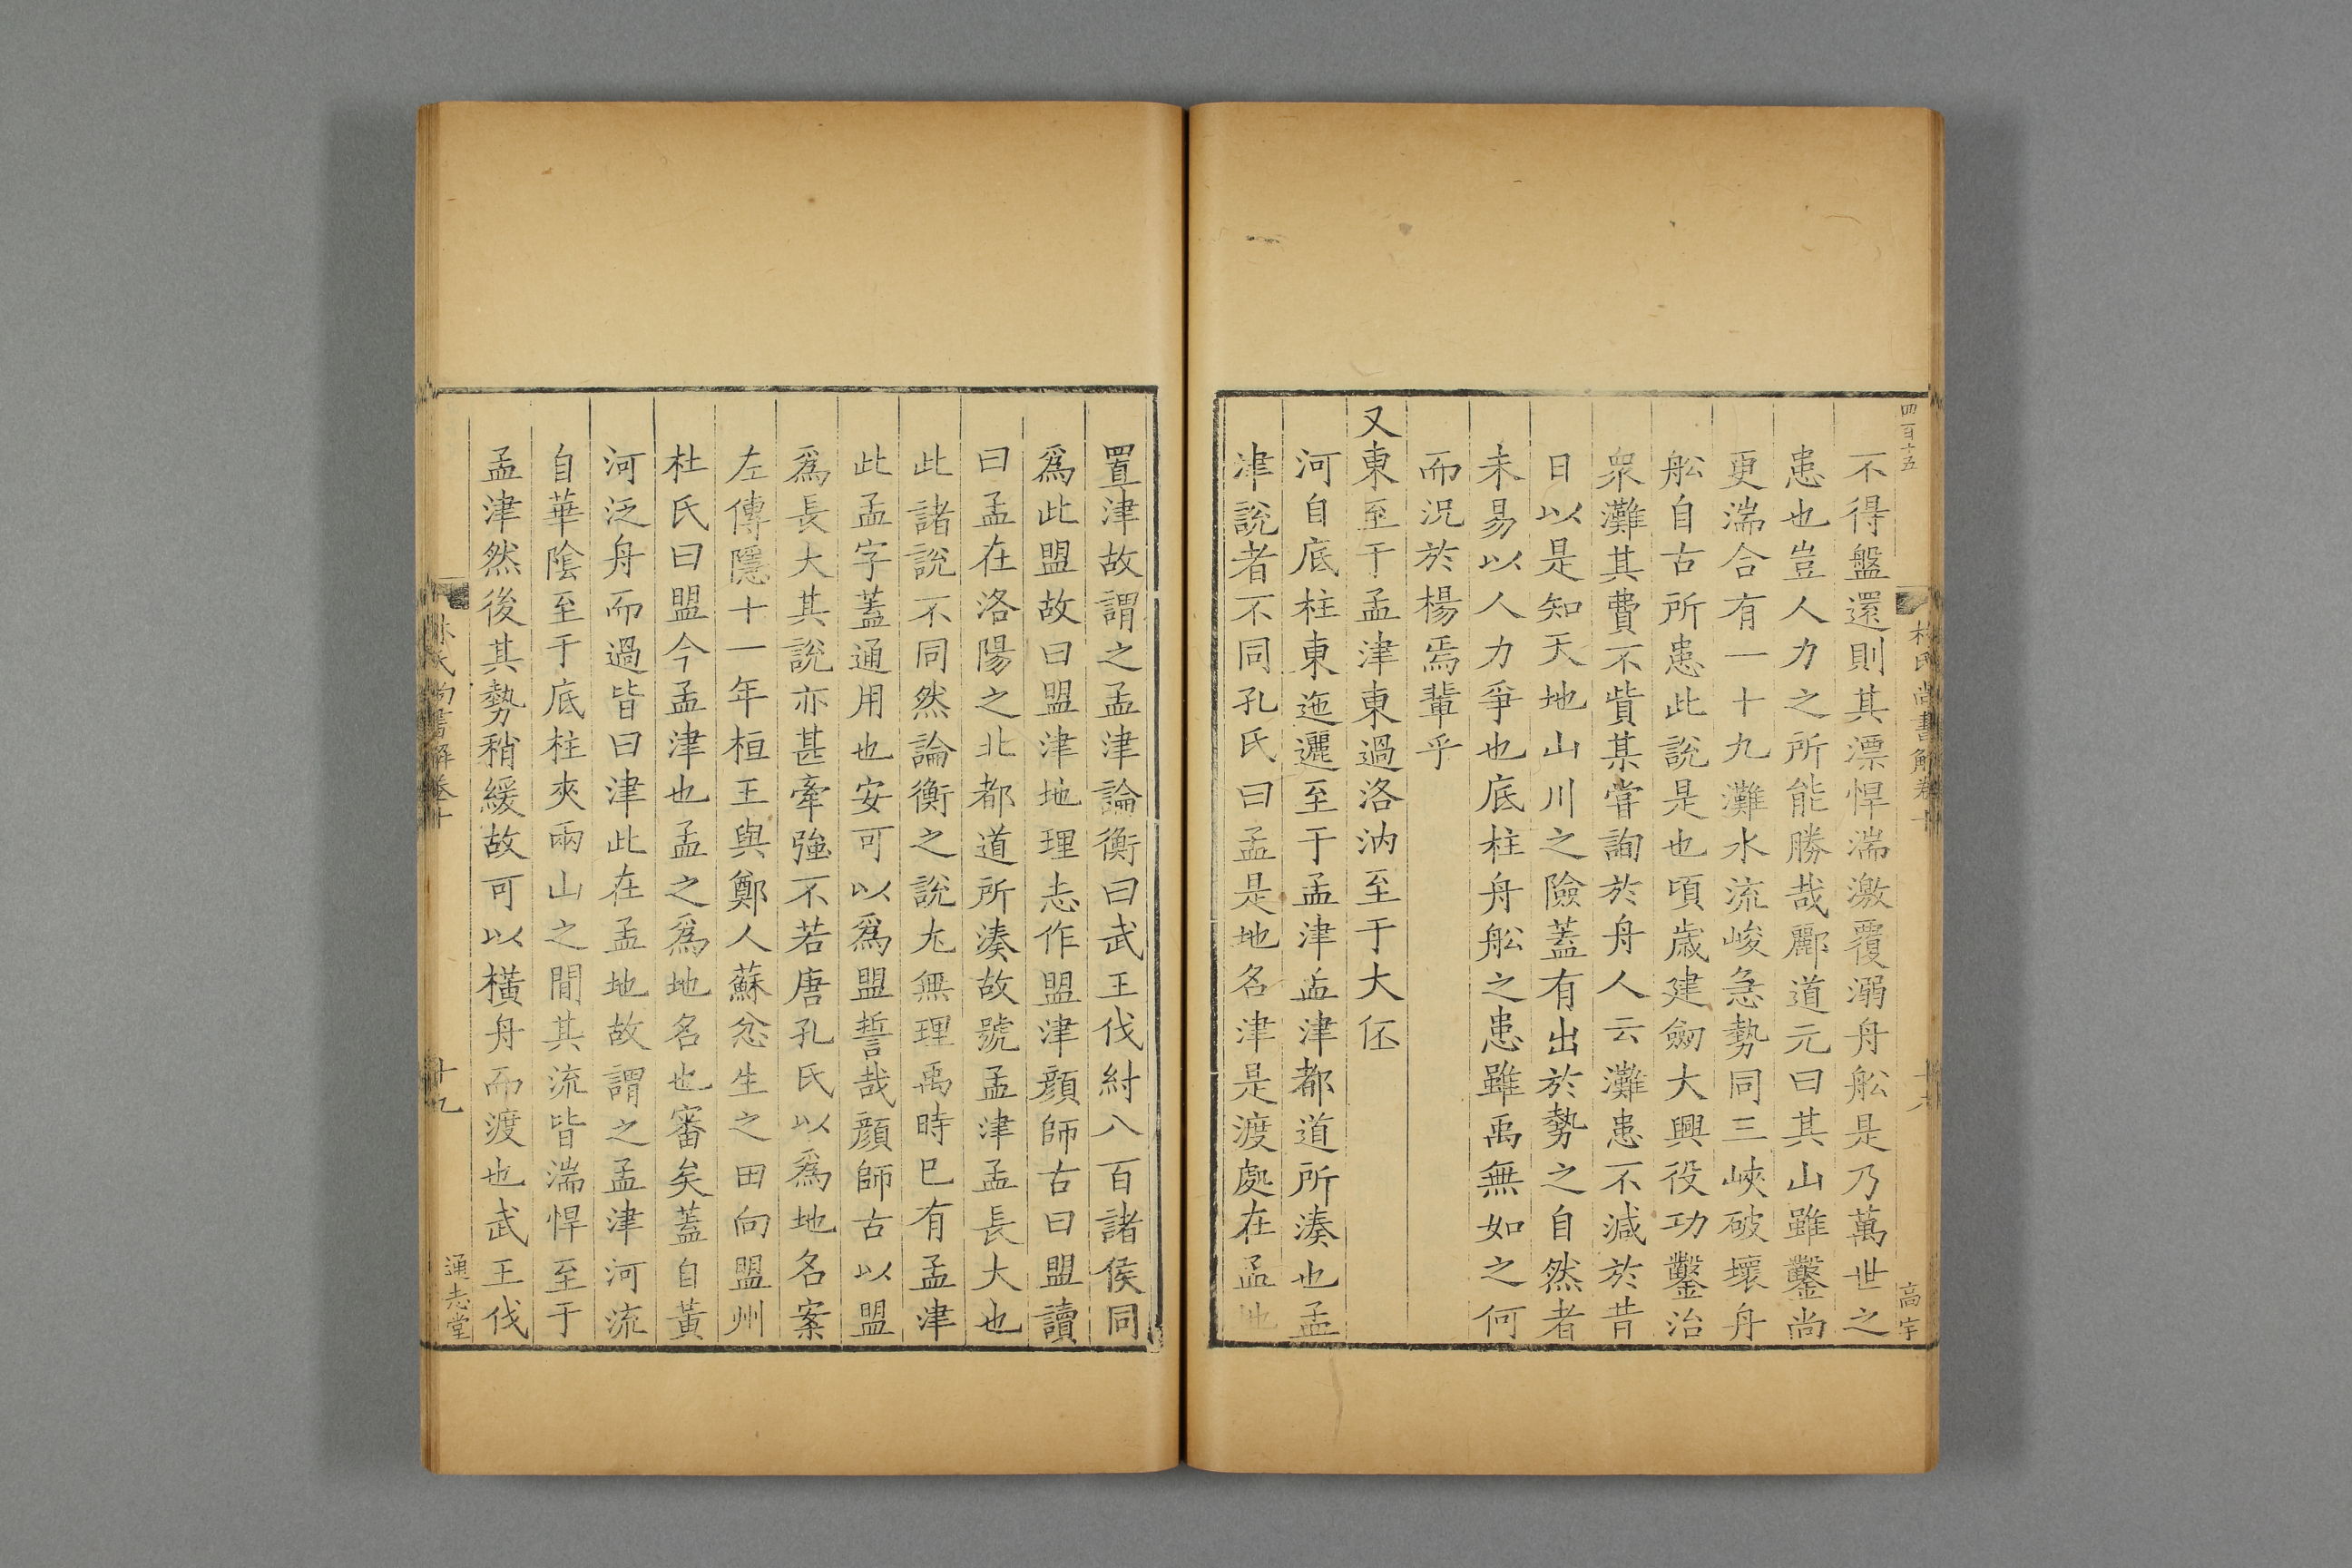 四百十五
林氏尚書解卷十
十八
高宇
不得盤還則其漂悍湍激覆溺舟舩是乃萬世之
患也豈人力之所能勝哉酈道元曰其山雖鑿尚
更湍合有一十九灘水流峻急勢同三峽破壞舟
舩自古所患此說是也頃歲建劒大興役功鑿治
衆灘其費不貲某嘗詢於舟人云灘患不減於昔
日以是知天地山川之險蓋有出於勢之自然者
未易以人力爭也底柱舟舩之患雖禹無如之何
而況於楊焉輩乎
又東至于孟津東過洛汭至于大伾
河自底柱東迤邐至于孟津孟津都道所湊也孟
津說者不同孔氏曰孟是地名津是渡處在孟地
置津故謂之孟津論衡曰武王伐紂八百諸侯同
爲此盟故曰盟津地理志作盟津顔師古曰盟讀
曰孟在洛陽之北都道所湊故號孟津孟長大也
此諸說不同然論衡之說尤無理禹時已有孟津
此孟字蓋通用也安可以爲盟誓哉顔師古以盟
爲長大其說亦甚牽強不若唐孔氏以爲地名案
左傳隱十一年桓王與鄭人蘇忿生之田向盟州
杜氏曰盟今孟津也孟之爲地名也審矣蓋自黃
河泛舟而過皆曰津此在孟地故謂之孟津河流
自華陰至于底柱夾兩山之間其流皆湍悍至于
孟津然後其勢稍緩故可以橫舟而渡也武王伐
林氏尚書解卷十
十九
通志堂